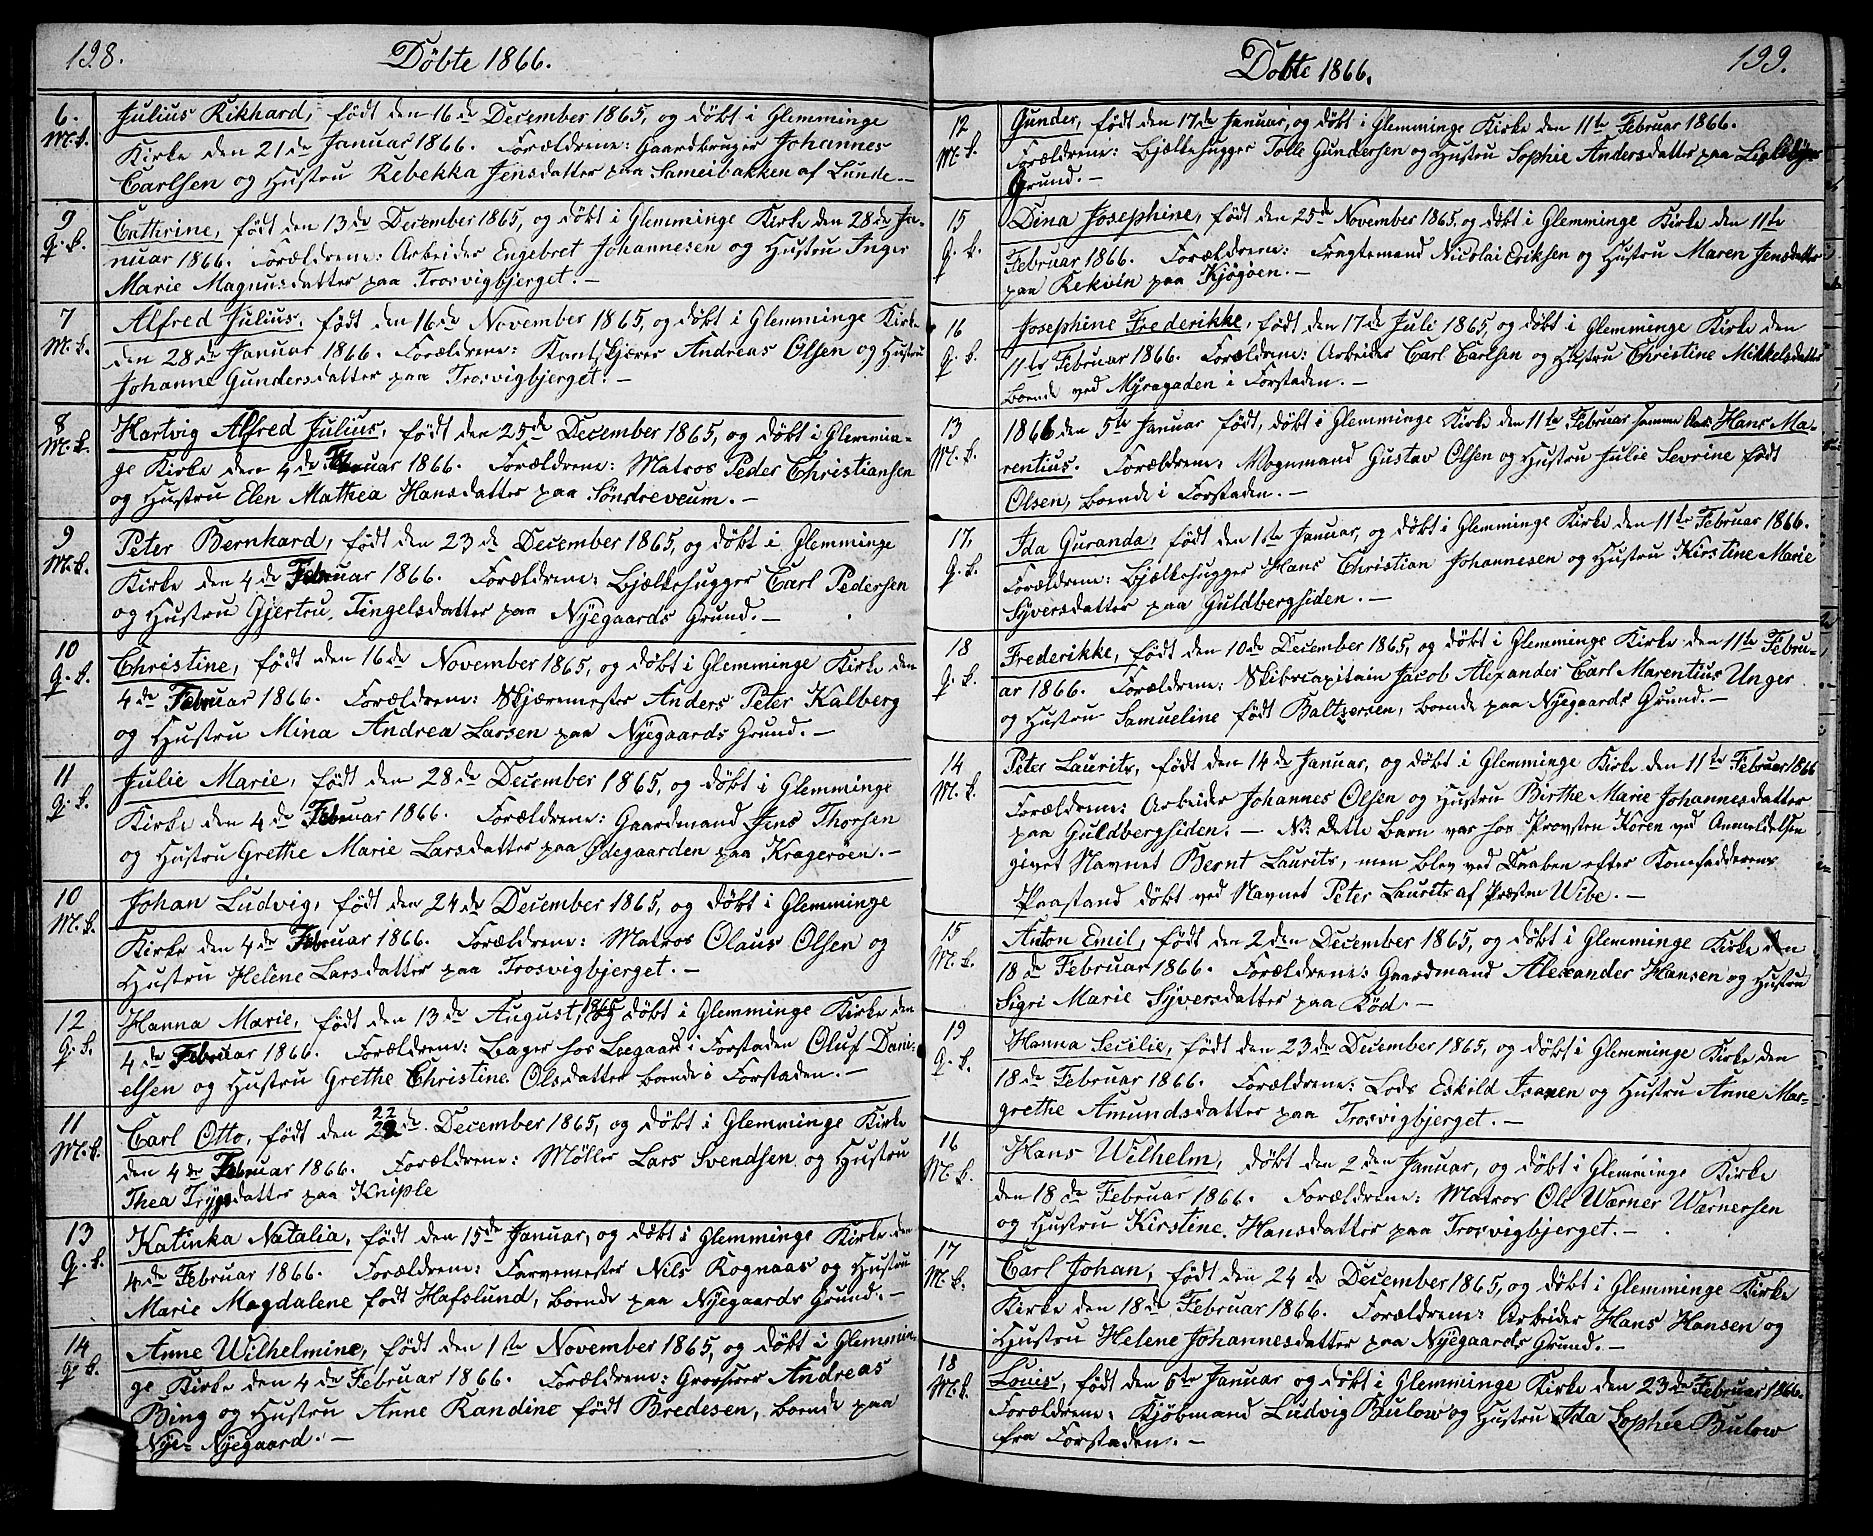 198.
Döbte 1866.
6.
M.k.
Julius Rikhard, født den 16de December 1865, og döbt i Glemminge
Kirke den 21de Januar 1866. Forældrene: Gaardbruger Johannes
Carlsen og Hustru Rebekka Jensdatter paa Sameibakken af Lunde.-
9
q.k.
Cathrine, født den 13de December 1865, og döbt i Glemminge Kirke den 28de Ja-
nuar 1866. Forældrene: Arbeider Engebret Johannesen og Hustru Inger
Marie Magnusdatter paa Trosvigbjerget.-
7
M.k.
Alfred Julius, født den 16de November 1865, og döbt i Glemminge Kirke
den 28de Januar 1866. Forældrene: Kantskjærer Andreas Olsen og Hustru
Johanne Gundersdatter paa Trosvigbjerget.-
8
M.k.
Hartvig Alfred Julius, født den 25de December 1865, og döbt i Glemmin-
ge Kirke den 4de Februar 1866. Forældrene: Matros Peder Christiansen
og Hustru Elen Mathea Hansdatter paa Söndreveum.-
9
M.k.
Peter Bernhard, født den 23de December 1865, og döbt i Glemminge
Kirke den 4de Februar 1866. Forældrene: Bjælkehugger Carl Pedersen
og Hustru Gjertru Tingelsdatter paa Nyegaards Grund.-
10
q.k.
Christine, født den 16de November 1865, og döbt i Glemminge Kirke den
4de Februar 1866. Forældrene: Skjæremester Anders Peter Kalberg
og Hustru Mina Andrea Larsen paa Nyegaards Grund.-
11
q.k.
Julie Marie, født den 28de December 1865, og döbt i Glemminge
Kirke den 4de Februar 1866. Forældrene: Gaardmand Jens Thorsen
og Hustru Grethe Marie Larsdatter paa Ødegaarden paa Kragerøen.-
10
M.k.
Johan Ludvig, født den 24de December 1865, og döbt i Glemminge
Kirke den 4de Februar 1866. Forældrene: Matros Olaus Olsen og
Hustru Helene Larsdatter paa Trosvigbjerget.-
12
q.k.
Hanna Marie, født den 13de August 1865 og döbt i Glemminge Kirke den
4de Februar 1866. Forældrene: Bager hos Leegaard i Forstaden Oluf Dani-
elsen og Hustru Grethe Christine Olsdatter boende i Forstaden.-
11
M.k.
Carl Otto, født den 22de December 1865, og döbt i Glemminge Kirke
den 4de Februar 1866. Forældrene: Möller Lars Svendsen og Hustru
Thea Trygsdatter paa Kniple
13
q.k.
Katinka Natalia, født den 15de Januar, og döbt i Glemminge Kirke den
4de Februar 1866. Forældrene: Farvemester Nils Rognaas og Hustru
Marie Magdalene født Hafslund, boende paa Nyegaards Grund.-
14
q.k.
Anne Wilhelmine, født den 1ste November 1865, og döbt i Glemmin-
ge Kirke den 4de Februar 1866. Forældrene: Grosserer Andreas
Bing og Hustru Anne Randine født Bredesen, boende paa
Nye-Nyegaard.-
199.
Döbte 1866.
12
M.k.
Gunder, født den 17de Januar, og döbt i Glemminge Kirke den 11te Februar 1866.
Forældrene: Bjælkehugger Tolle Gundersen og Hustru Sophie Andersdatter paa Lislebyes
Grund.-
15
q.k.
Dina Josephine, født den 25de November 1865 og döbt i Glemminge Kirke den 11te
Februar 1866. Forældrene: Fragtemand Nicolai Eriksen og Hustru Maren Jensdatter
paa Rekvin paa Kjøgøen.-
16
q.k.
Josephine Frederikke, født den 17de Juli 1865, og döbt i Glemminge Kirke den
11te Februar 1866. Forældrene: Arbeider Carl Carlsen og Hustru Christine Mikkelsdatter
boende ved Myragaden i Forstaden.-
13
M.k.
1866 den 5te Januar født, döbt i Glemminge Kirke den 11te Februar samme Aar: Hans Ma-
rentius. Forældrene: Vognmand Gustav Olsen og Hustru Julie Sevrine født
Olsen, boende i Forstaden.-
17,
q.k.
Ida Guranda, født den 1ste Januar, og döbt i Glemminge Kirke den 11te Februar 1866.
Forældrene: Bjælkehugger Hans Christian Johannesen og Hustru Kirstine Marie
Syversdatter paa Guldbergsiden.-
18
q.k.
Frederikke, født den 10de December 1865, og döbt i Glemminge Kirke den 11te Febru-
ar 1866. Forældrene: Skibscapitain Jacob Alexander Carl Marentius Unger
og Hustru Samueline født Baltzersen, boende paa Nyegaards Grund.-
14
M.k.
Peter Laurits, født den 14de Januar, og döbt i Glemminge Kirke den 11te Februar 1866
Forældrene: Arbeider Johannes Olsen og Hustru Birthe Marie Johannesdatter
paa Guldbergsiden.- NB: dette Barn var hos Provsten Koren ved Anmeldelsen
givet Navnet Bernt Laurits, men blev ved Daaben efter Konefadderens
Paastand döbt ved Navnet Peter Laurits af Præsten Wibe.-
15
M.k.
Anton Emil, født den 2den December 1865, og döbt i Glemminge Kirke den
18de Februar 1866. Forældrene: Gaardmand Alexander Hansen og Hustru
Sigri Marie Syversdatter paa Röd.-
19
q.k.
Hanna Secilie, født den 23de December 1865, og döbt i Glemminge Kirke den
18de Februar 1866. Forældrene: Lods Eskild Isaxen og Hustru Anne Mar-
grethe Amundsdatter paa Trosvigbjerget.-
16
M.k.
Hans Wilhelm, döbt den 2den Januar, og döbt i Glemminge Kirke
den 18de Februar 1866. Forældrene: Matros Ole Wærner Wærnersen
og Hustru Kirstine Hansdatter paa Trosvigbjerget.-
17
M.k.
Carl Johan, født den 24de December 1865, og döbt i Glemminge Kirke
Kirke den 18de Februar 1866. Forældrene: Arbeider Hans Hansen og
Hustru Helene Johannesdatter paa Nyegaards Grund.-
18
M.k.
Louis, født den 6te Januar og döbt i Glemminge Kirke den 23de Februar 1866.
Forældrene: Kjöbmand Ludvig Bulow og Hustru Ida Sophie Bulow
fra Forstaden.-